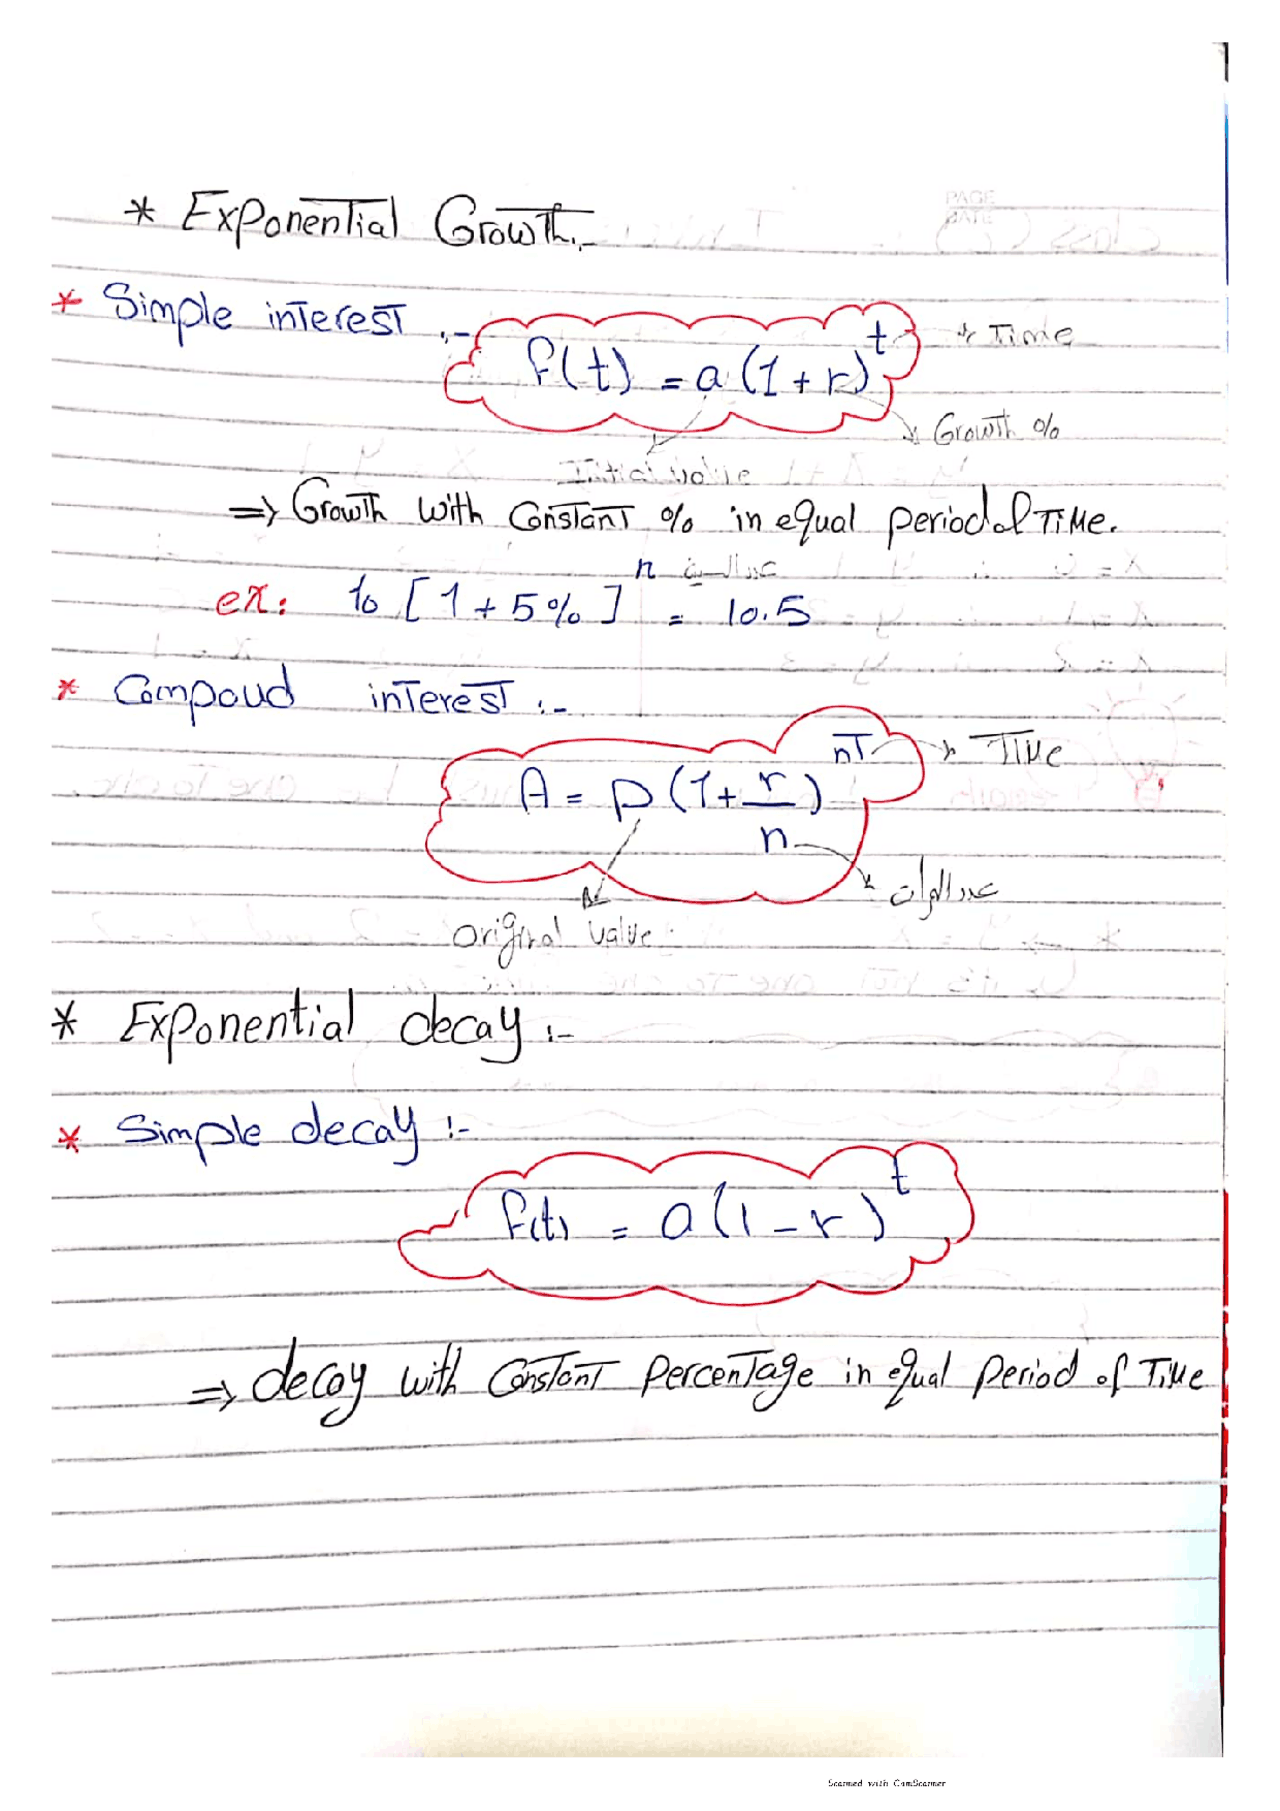 * Exponential Growth:-
* Simple interest :-
f(t) = a (1 + r)^t
Time
Growth %
Initial value
=> Growth with Constant % in equal period of Time.
n
ex: 10 [1 + 5%] = 10.5
* Compoud interest :-
A = P (1 + r/n)^nT
Time
عدد المرات
original value
* Exponential decay :-
* Simple decay :-
f(t) = a (1 - r)^t
=> decay with Constant Percentage in equal Period of Time
Scanned with CamScanner